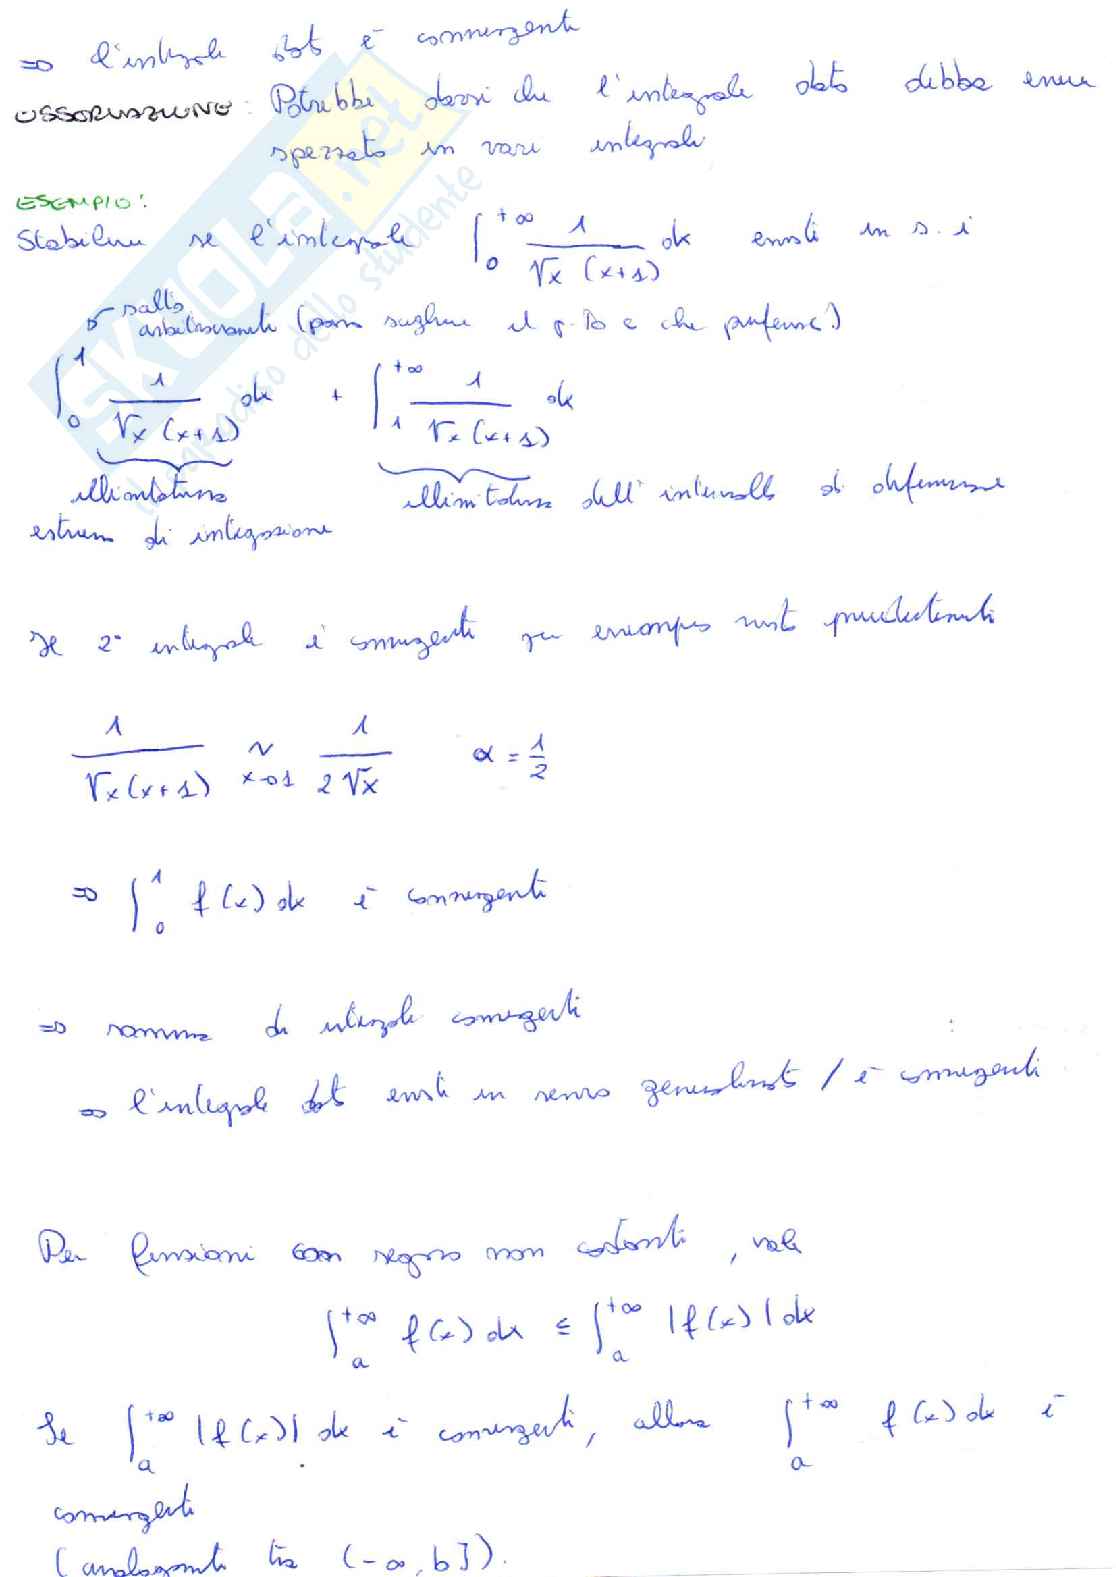 ⇒ l'integrale dato è convergente
OSSERVAZIONE: Potrebbe darsi che l'integrale dato debba essere
spezzato in vari integrali
ESEMPIO:
Stabilire se l'integrale ∫_0^{+∞} 1/(√x (x+1)) dx esiste in s. i
scelto
arbitrariamente (posso scegliere il p.to c che preferisco!)
∫_0^1 1/(√x (x+1)) dx + ∫_1^{+∞} 1/(√x (x+1)) dx
illimitatezza illimitatezza dell'intervallo di definizione
estremo di integrazione
Il 2° integrale è convergente per esempio visto precedentemente
1/(√x (x+1)) ~_{x→1} 1/(2√x) α = 1/2
⇒ ∫_0^1 f(x) dx è convergente
⇒ somma di integrali convergenti
⇒ l'integrale dato esiste in senso generalizzato / è convergente
Per funzioni con segno non costante, vale
∫_a^{+∞} f(x) dx ≤ ∫_a^{+∞} |f(x)| dx
Se ∫_a^{+∞} |f(x)| dx è convergente, allora ∫_a^{+∞} f(x) dx è
convergente
(analogamente tra (-∞, b]).
SKUOLA.net
il paradiso dello studente